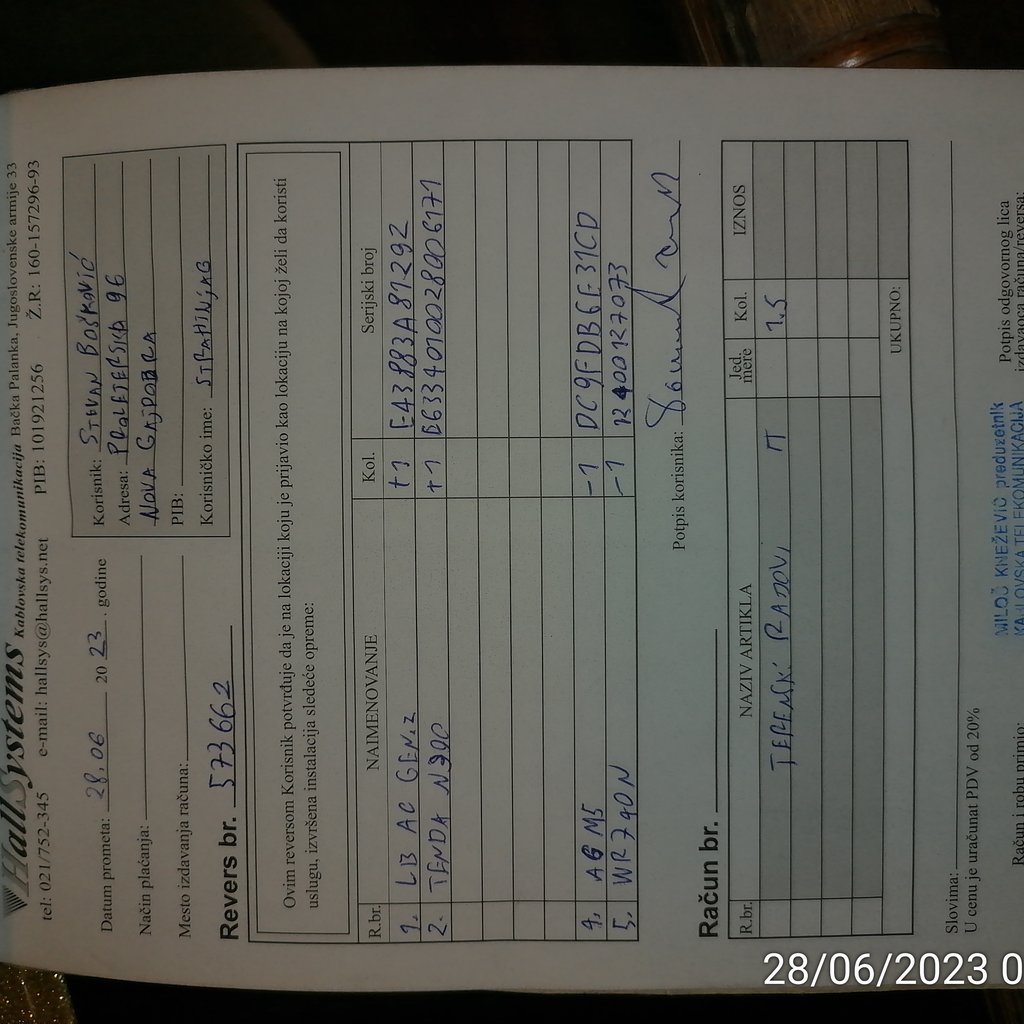 HallSystems Kablovska telekomunikacija Bačka Palanka, Jugoslovenske armije 33
tel: 021/752-345 e-mail: hallsys@hallsys.net PIB: 101921256 Ž.R: 160-157296-93
Datum prometa: 28.06 2023. godine
Način plaćanja:
Mesto izdavanja računa:
Korisnik: STEVAN BOŠKOVIĆ
Adresa: PROLETERSKA 96
NOVA GAJDOBRA
PIB:
Korisničko ime: STRAHINJAB
Revers br. 573662
Ovim reversom Korisnik potvrđuje da je na lokaciji koju je prijavio kao lokaciju na kojoj želi da koristi
uslugu, izvršena instalacija sledeće opreme:
R.br. NAIMENOVANJE Kol. Serijski broj
1. LB AC GEN2 +1 E43883A81292
2. TENDA N300 +1 E6334010028006171
4. AG M5 -1 DC9FDB6E31CD
5. WR740N -1 12400127073
Potpis korisnika:
Račun br.
R.br. NAZIV ARTIKLA Jed. mere Kol. IZNOS
TERENSKI RADOVI IT 1.5
UKUPNO:
Slovima:
U cenu je uračunat PDV od 20%
Račun i robu primio:
MILOŠ KNEŽEVIĆ preduzetnik
KABLOVSKA TELEKOMUNIKACIJA
Potpis odgovornog lica
izdavaoca računa/reversa:
28/06/2023 0